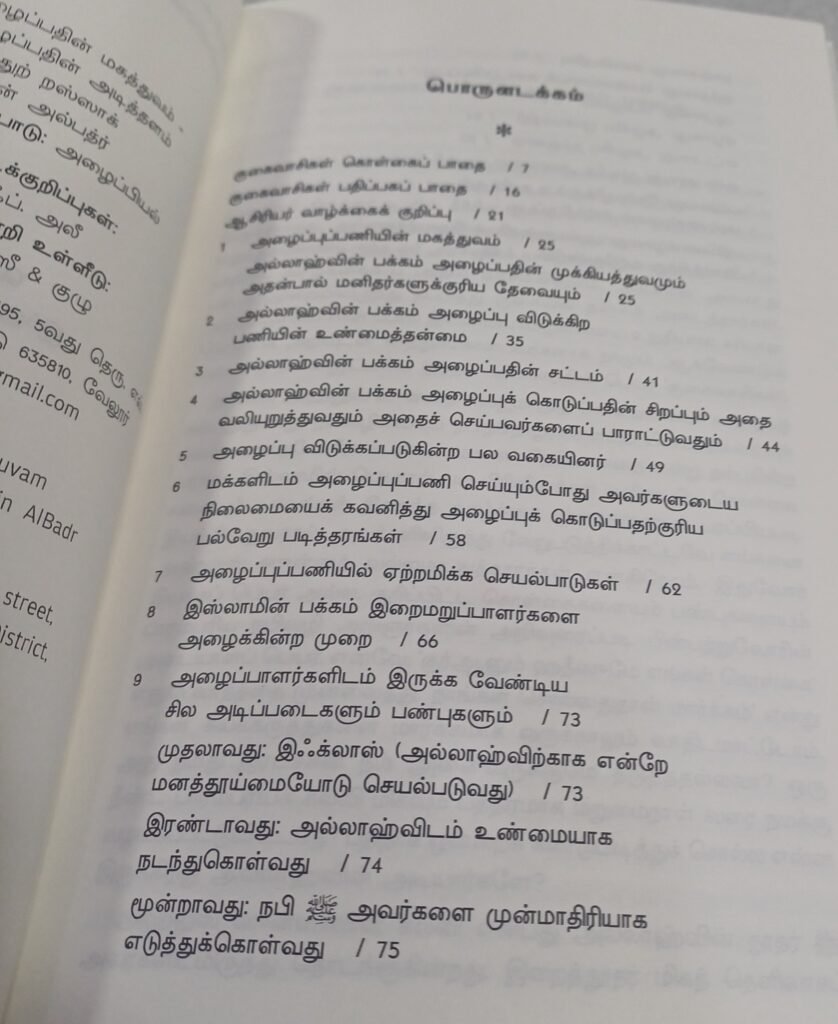 மழைப்பதின் மகத்துவம் -
ழைப்பதின் அடித்தளம்
துற் றஸ்ஸாக்
ன் அல்பத்ர்
பாடு: அழைப்பியல்
க்குறிப்புகள்:
ப். அலீ
றி உள்ளீடு:
ஸீ & குழு
95, 5வது தெரு,
635810, வேலூர்
mail.com
uvam
in AlBadr
street,
istrict,
பொருளடக்கம்
*
குகைவாசிகள் கொள்கைப் பாதை / 7
குகைவாசிகள் பதிப்பகப் பாதை / 16
ஆசிரியர் வாழ்க்கைக் குறிப்பு / 21
1 அழைப்புப்பணியின் மகத்துவம் / 25
அல்லாஹ்வின் பக்கம் அழைப்பதின் முக்கியத்துவமும்
அதன்பால் மனிதர்களுக்குரிய தேவையும் / 25
2 அல்லாஹ்வின் பக்கம் அழைப்பு விடுக்கிற
பணியின் உண்மைத்தன்மை / 35
3 அல்லாஹ்வின் பக்கம் அழைப்பதின் சட்டம் / 41
4 அல்லாஹ்வின் பக்கம் அழைப்புக் கொடுப்பதின் சிறப்பும் அதை
வலியுறுத்துவதும் அதைச் செய்பவர்களைப் பாராட்டுவதும் / 44
5 அழைப்பு விடுக்கப்படுகின்ற பல வகையினர் / 49
6 மக்களிடம் அழைப்புப்பணி செய்யும்போது அவர்களுடைய
நிலைமையைக் கவனித்து அழைப்புக் கொடுப்பதற்குரிய
பல்வேறு படித்தரங்கள் / 58
7 அழைப்புப்பணியில் ஏற்றமிக்க செயல்பாடுகள் / 62
8 இஸ்லாமின் பக்கம் இறைமறுப்பாளர்களை
அழைக்கின்ற முறை / 66
9 அழைப்பாளர்களிடம் இருக்க வேண்டிய
சில அடிப்படைகளும் பண்புகளும் / 73
முதலாவது: இஃக்லாஸ் (அல்லாஹ்விற்காக என்றே
மனத்தூய்மையோடு செயல்படுவது) / 73
இரண்டாவது: அல்லாஹ்விடம் உண்மையாக
நடந்துகொள்வது / 74
மூன்றாவது: நபி ﷺ அவர்களை முன்மாதிரியாக
எடுத்துக்கொள்வது / 75